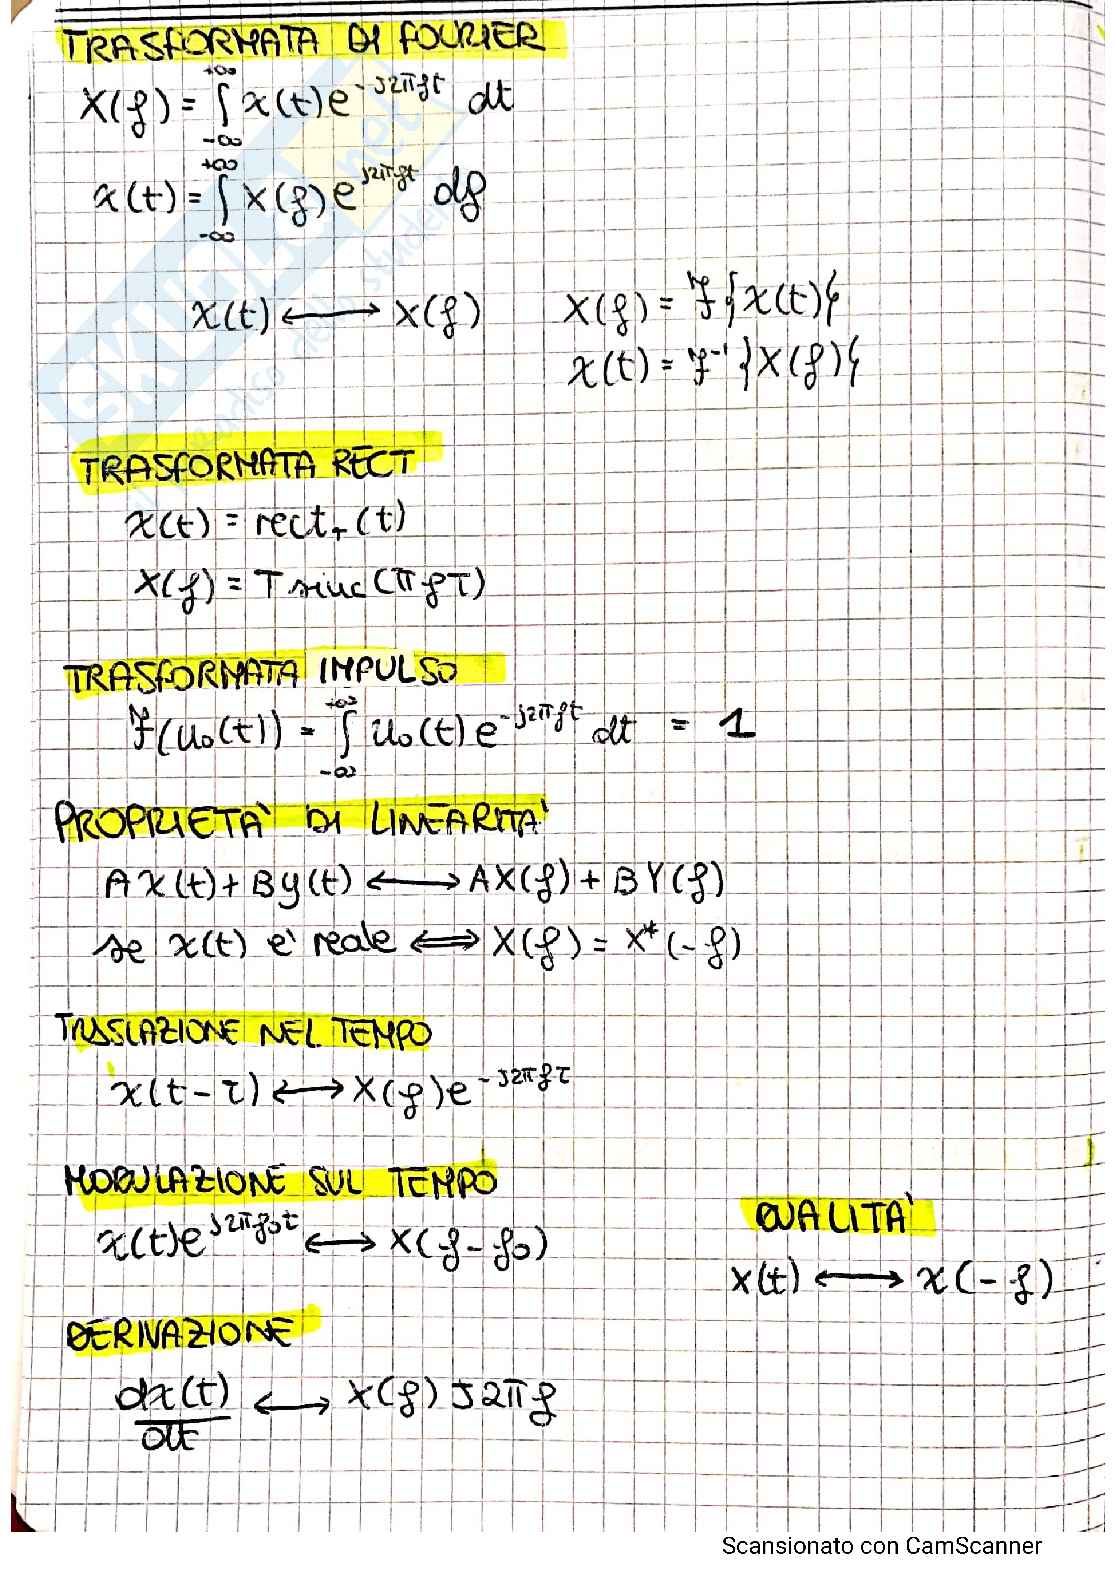 TRASFORMATA DI FOURIER
X(f) = ∫_{-∞}^{+∞} x(t) e^{-j2πft} dt
x(t) = ∫_{-∞}^{+∞} X(f) e^{j2πft} df
x(t) ⟷ X(f)    X(f) = F{x(t)}
x(t) = F^{-1}{X(f)}
TRASFORMATA RECT
x(t) = rect_T(t)
X(f) = T sinc(πfT)
TRASFORMATA IMPULSO
F(u₀(t)) = ∫_{-∞}^{+∞} u₀(t) e^{-j2πft} dt = 1
PROPRIETÀ DI LINEARITÀ
A x(t) + B y(t) ⟷ A X(f) + B Y(f)
se x(t) è reale ⟺ X(f) = X*(-f)
TRASLAZIONE NEL TEMPO
x(t-τ) ⟷ X(f) e^{-j2πfτ}
MODULAZIONE SUL TEMPO
x(t) e^{j2πf₀t} ⟷ X(f-f₀)
DUALITÀ
X(t) ⟷ x(-f)
DERIVAZIONE
dx(t)/dt ⟷ X(f) j2πf
Scansionato con CamScanner